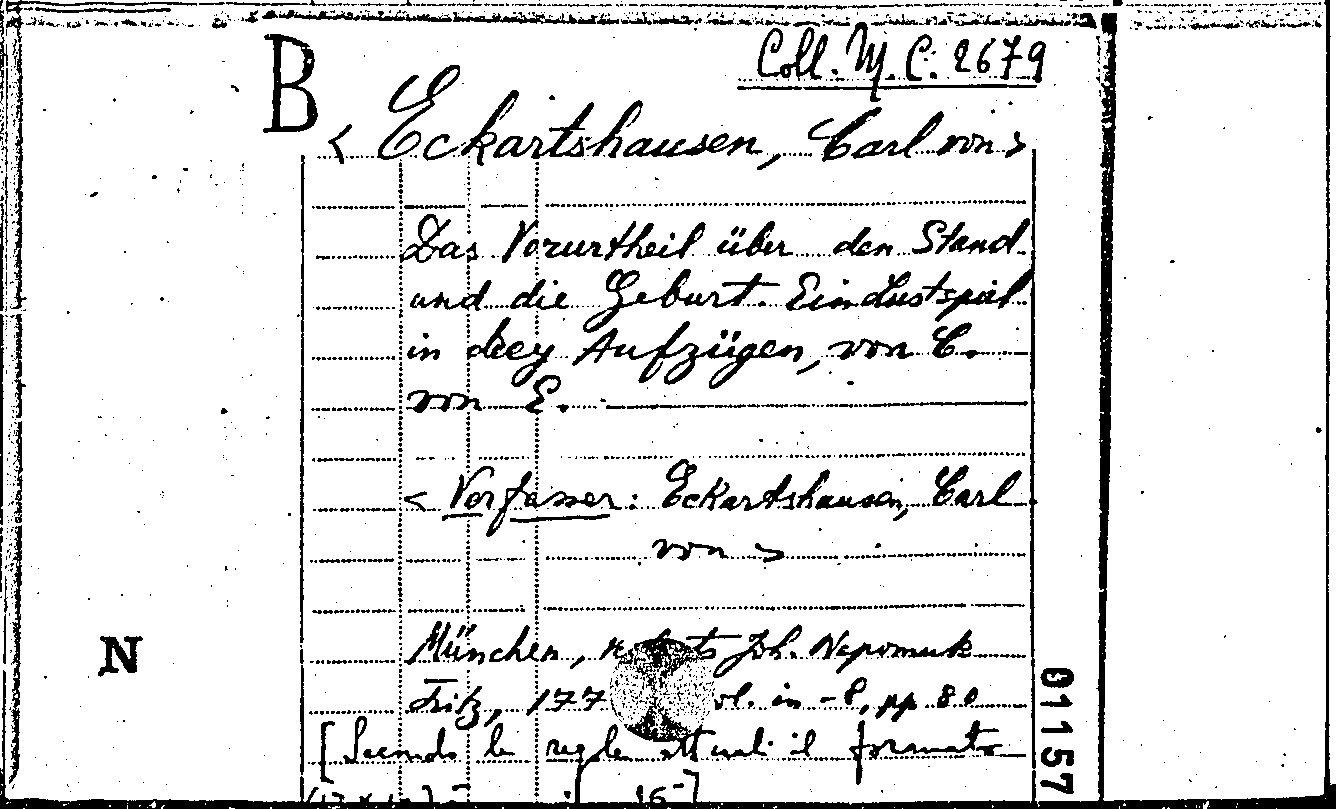 B
Coll. M. C. 2679
< Eckartshausen, Carl von >
Das Vorurtheil über den Stand
und die Geburt. Ein Lustspiel
in drey Aufzügen, von C.
von E.
< Verfasser: Eckartshausen, Carl
von >
München, Joh. Nepomuk
Fritz, 177 vol. in -8, pp 80
[Secondo le regole attuali il formato
16-]
N
01157